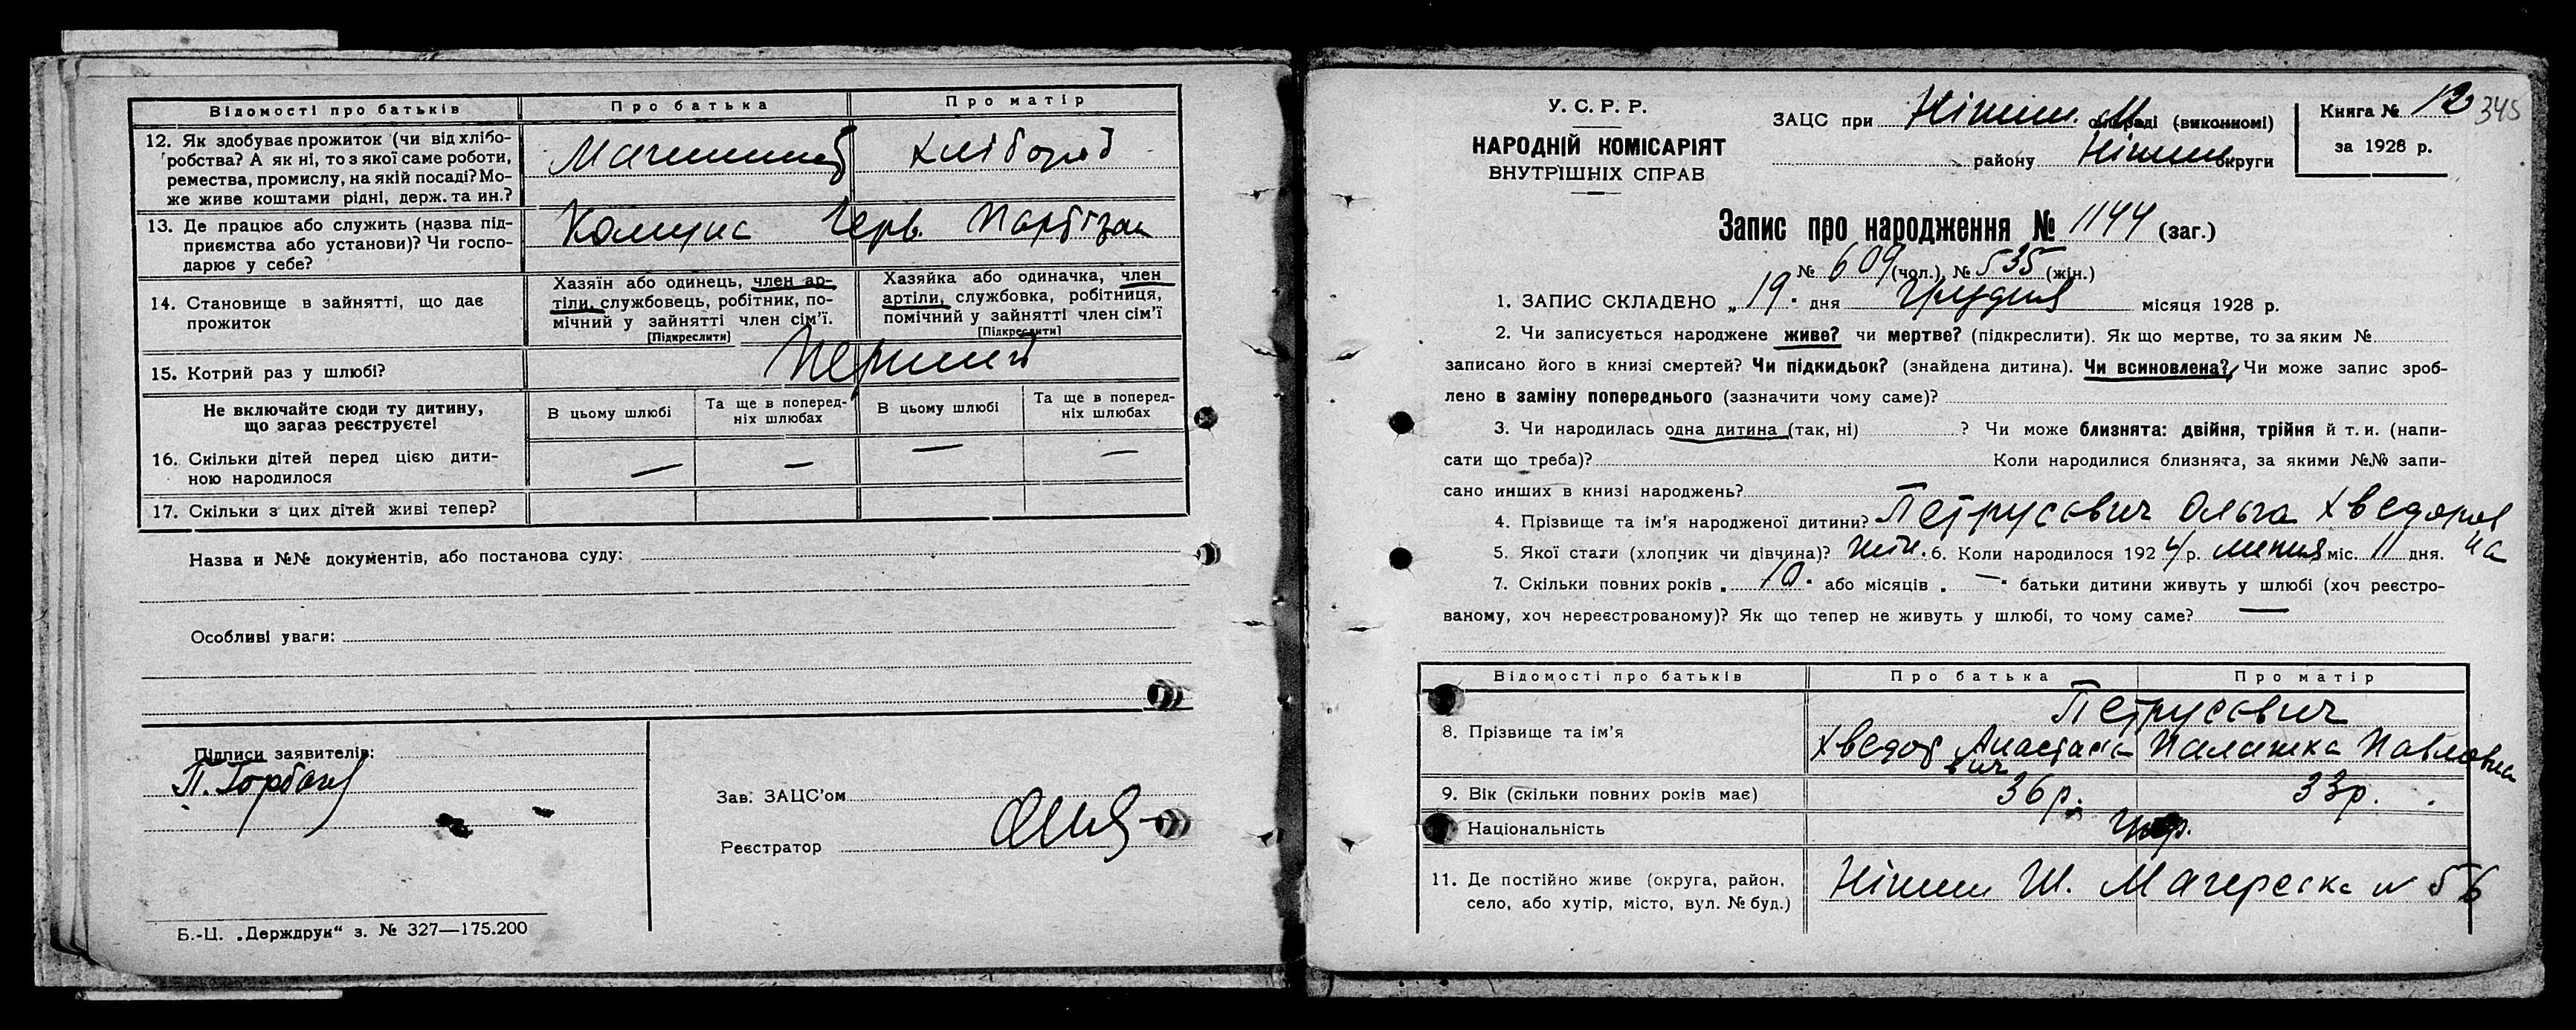 Відомості про батьків Про батька Про матір
12. Як здобуває прожиток (чи від хлібо-
робства? А як ні, то з якої саме роботи,
ремества, промислу, на якій посаді? Мо-
же живе коштами рідні, держ. та ин.?
Машиніст хлібороб
13. Де працює або служить (назва під-
приємства або установи)? Чи госпо-
дарює у себе?
Комуна Черв. Партизан
14. Становище в зайнятті, що дає
прожиток
Хазяїн або одинець, член ар-
тілі, службовець, робітник, по-
мічний у зайнятті член сім'ї.
[Підкреслити]
Хазяйка або одиначка, член
артілі, службовка, робітниця,
помічний у зайнятті член сім'ї
[Підкреслити]
15. Котрий раз у шлюбі? Перший
Не включайте сюди ту дитину,
що зараз реєструєте!
В цьому шлюбі
Та ще в поперед-
ніх шлюбах
В цьому шлюбі
Та ще в поперед-
ніх шлюбах
16. Скільки дітей перед цією дити-
ною народилося — — — —
17. Скільки з цих дітей живі тепер?
Назва и №№ документів, або постанова суду:
Особливі уваги:
Підписи заявителів:
П. Горбач
Зав. ЗАЦС'ом
Реєстратор
Б.-Ц. „Держдрук“ з. № 327—175.200
У. С. Р. Р.
НАРОДНІЙ КОМІСАРІЯТ
ВНУТРІШНІХ СПРАВ
ЗАЦС при Ніжин. М (виконкомі)
району Ніжин округи
Книга № 12 345
за 1928 р.
Запис про народження № 1144 (заг.)
№ 609 (чол.), № 535 (жін.)
1. ЗАПИС СКЛАДЕНО „19" дня Грудня місяця 1928 р.
2. Чи записується народжене живе? чи мертве? (підкреслити). Як що мертве, то за яким №
записано його в книзі смертей? Чи підкидьок? (знайдена дитина). Чи всиновлена? Чи може запис зроб-
лено в заміну попереднього (зазначити чому саме)?
3. Чи народилась одна дитина (так, ні) ? Чи може близнята: двійня, трійня й т. и. (напи-
сати що треба)? Коли народилися близнята, за якими №№ запи-
сано инших в книзі народжень?
4. Прізвище та ім'я народженої дитини? Петрусевич Ольга Хведоров
на
5. Якої стати (хлопчик чи дівчина)? жін. 6. Коли народилося 1924 р. липня міс. 11 дня.
7. Скільки повних років „10" або місяців „—" батьки дитини живуть у шлюбі (хоч реєстро-
ваному, хоч нереєстрованому)? Як що тепер не живуть у шлюбі, то чому саме? —
Відомості про батьків Про батька Про матір
Петрусевич
8. Прізвище та ім'я Хведор Анастасіє Палажка Павловна
вич
9. Вік (скільки повних років має) 36 р. 33 р.
Національність Укр.
11. Де постійно живе (округа, район,
село, або хутір, місто, вул. № буд.)
Ніжин Ш. Магерська № 56